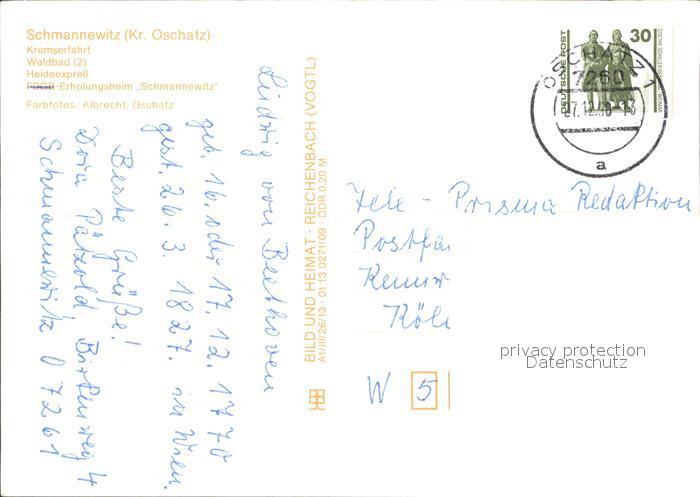 Schmannewitz (Kr. Oschatz)
Kremserfahrt
Waldbad (2)
Heideexpreß
FDGB-Erholungsheim „Schmannewitz"
Farbfotos: Albrecht, Oschatz
Ludwig van Beethoven
geb. 16. oder 17. 12. 1770
gest. 26. 3. 1827. in Wien.
Beste Grüße!
Dora Pätzold, Birkenweg 4
Schmannewitz O 7261
BILD UND HEIMAT · REICHENBACH (VOGTL)
A1/III/26/13 · 01 13 0271/09 · DDR 0,20 M
DEUTSCHE POST
30
OSCHATZ 1
7260
27.12.90-13
a
Tele - Prisma Redaktion
Postfa
Kennw
Köln
W 5
privacy protection
Datenschutz